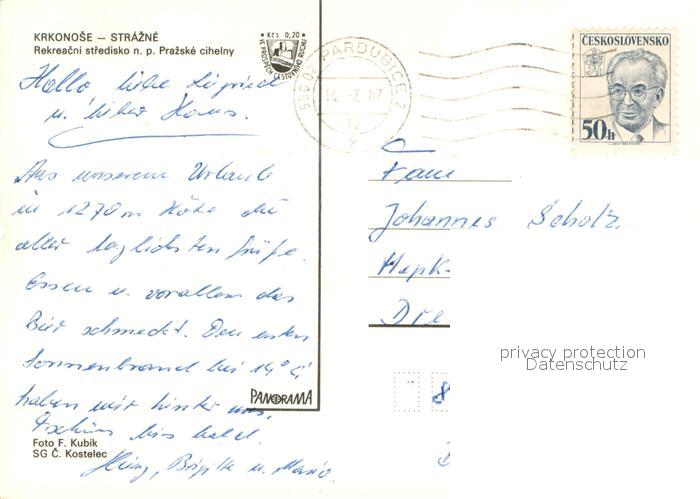 KRKONOŠE – STRÁŽNÉ
Rekreační středisko n. p. Pražské cihelny
Kčs 0,20
VE PROSPĚCH CESTOVNÍHO RUCHU
530 02 PARDUBICE 2
14. -7. 87
17
ČESKOSLOVENSKO
50h
Hallo liebe Sigrid
u. lieber Hans.
Aus unserem Urlaub
in 1270m Höhe die
aller herzlichsten Grüße.
Essen u. vorallem das
Bier schmeckt. Den ersten
Sonnenbrand bei 14° C
haben wir hinter uns.
Tschüss bis bald.
Heinz, Brigitte u. Mario.
PANORAMA
Foto F. Kubík
SG Č. Kostelec
Fam
Johannes Scholz
Hepk-
Dre
8
privacy protection
Datenschutz